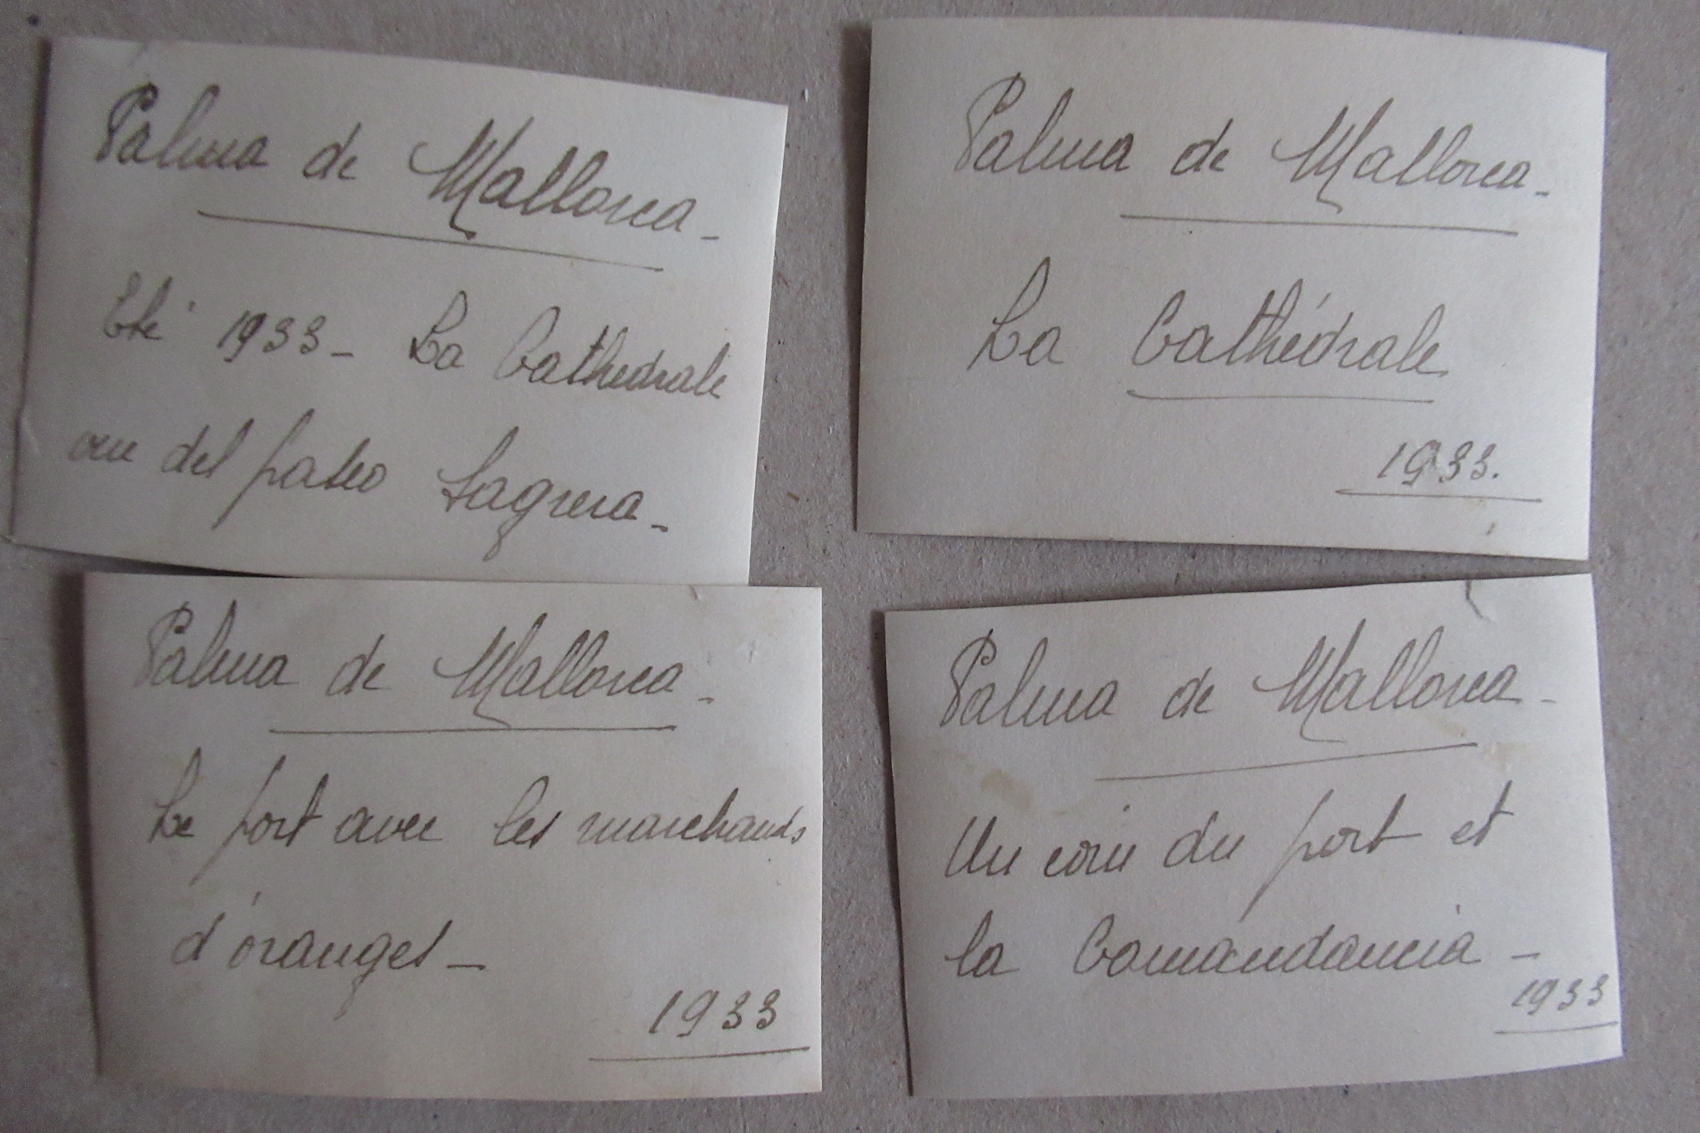 Palma de Mallorca -
Eté 1933 - La Cathédrale
vue del paseo Sagrera -
Palma de Mallorca -
La Cathédrale
1933.
Palma de Mallorca -
Le port avec les marchands
d'oranges -
1933
Palma de Mallorca -
Un coin du port et
la Comandancia -
1933